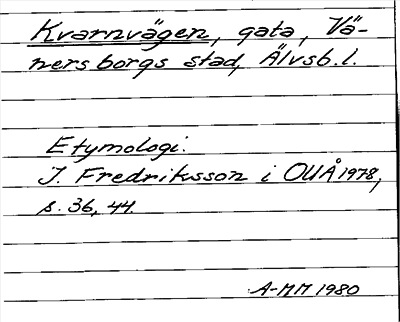 Kvarnvägen, gata, Vä-
nersborgs stad, Älvsb. l.
Etymologi.
I. Fredriksson i OUÅ 1978,
s. 36, 44.
A-MM 1980